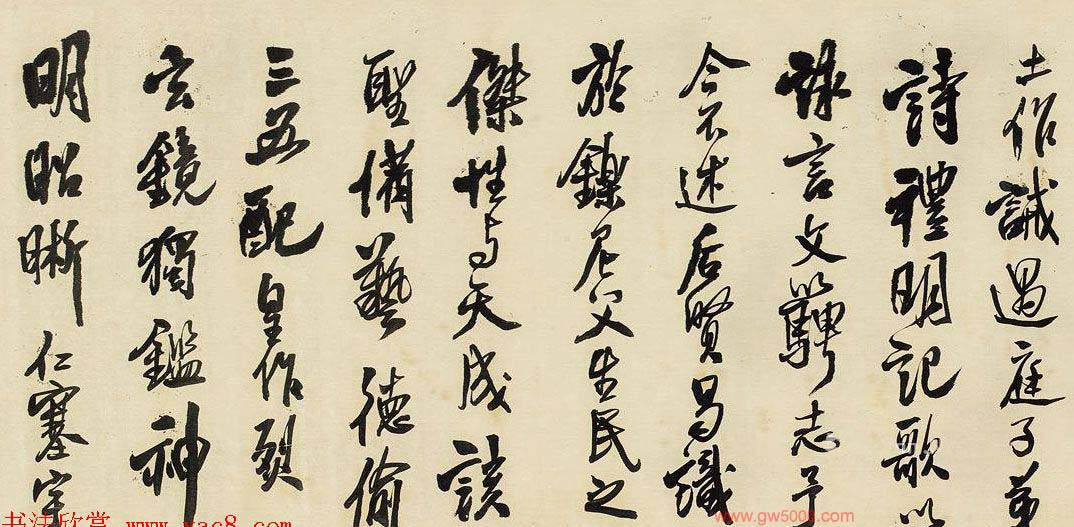 土作誡過庭子弟
詩禮明記歌以
詠言文以騁志予
今不述后賢曷識
於鑠尼父生民之
傑性与天成該
聖備藝德倫
三五配皇作烈
玄鏡獨鑑神
明昭晰仁塞宇
书法欣赏 www.yac8.com
www.gw500.com